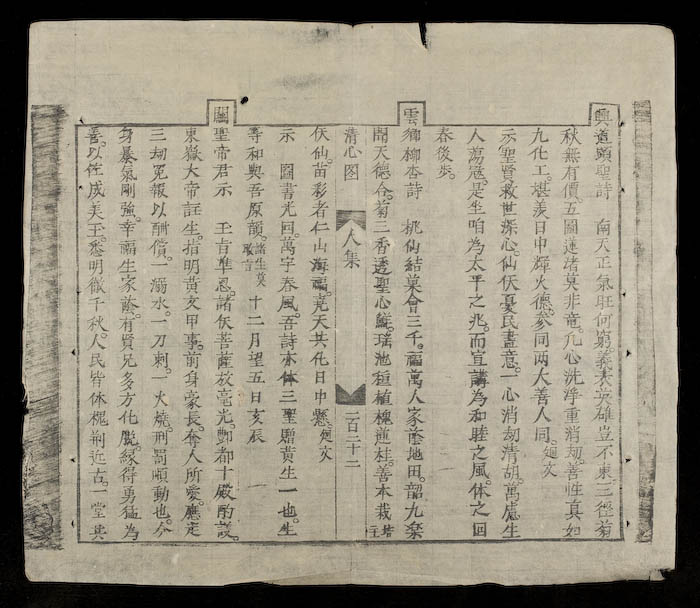 興道顕聖詩 南天正氣旺何窮義表英雄豈不東三徑菊
秋無有價。五圖蓮渚莫非竜。九心洗淨重消刼。善性真如
九化工。堪羡日中輝火德。參同两大善人同。迴文
示聖賢救世深心。仙伏憂民盡意。一心消刼清胡。萬處生
人蕩寇。是坐咱為太平之兆。而宣講為和睦之風。体之回
春後步。
雲鄉柳杏詩 桃仙結菓會三千。福萬人家蔭地田。韶九楽
開天德合。菊三香透聖心鮮。瑤池種植槐煎桂。善本栽培
清心图 人集 一百三十二
伕仙。苗彩者仁山海福。堯天其化日中懸。迴文
示 圖書光回。萬字春風。吾詩亦体三聖贈黄生一也。生
等和與吾原韻。諸生莫敢言 十二月望五日亥辰
關聖帝君示 玉旨準恩。諸伕菩薩放毫光。酆都十殿酌議。
東嶽大帝註生。指明黄文甲事。前身豪長。奪人所愛。應定
三刼冤報以酬償。一溺水。一刀刺。一火燒。刑罰順動也。今
身暴氣剛強。幸福生家蔭。有賢兄多方化勸。縁得勇猛為
善。以佐成美玉。悉明徹千秋。人民皆体槐荆近古。一堂共